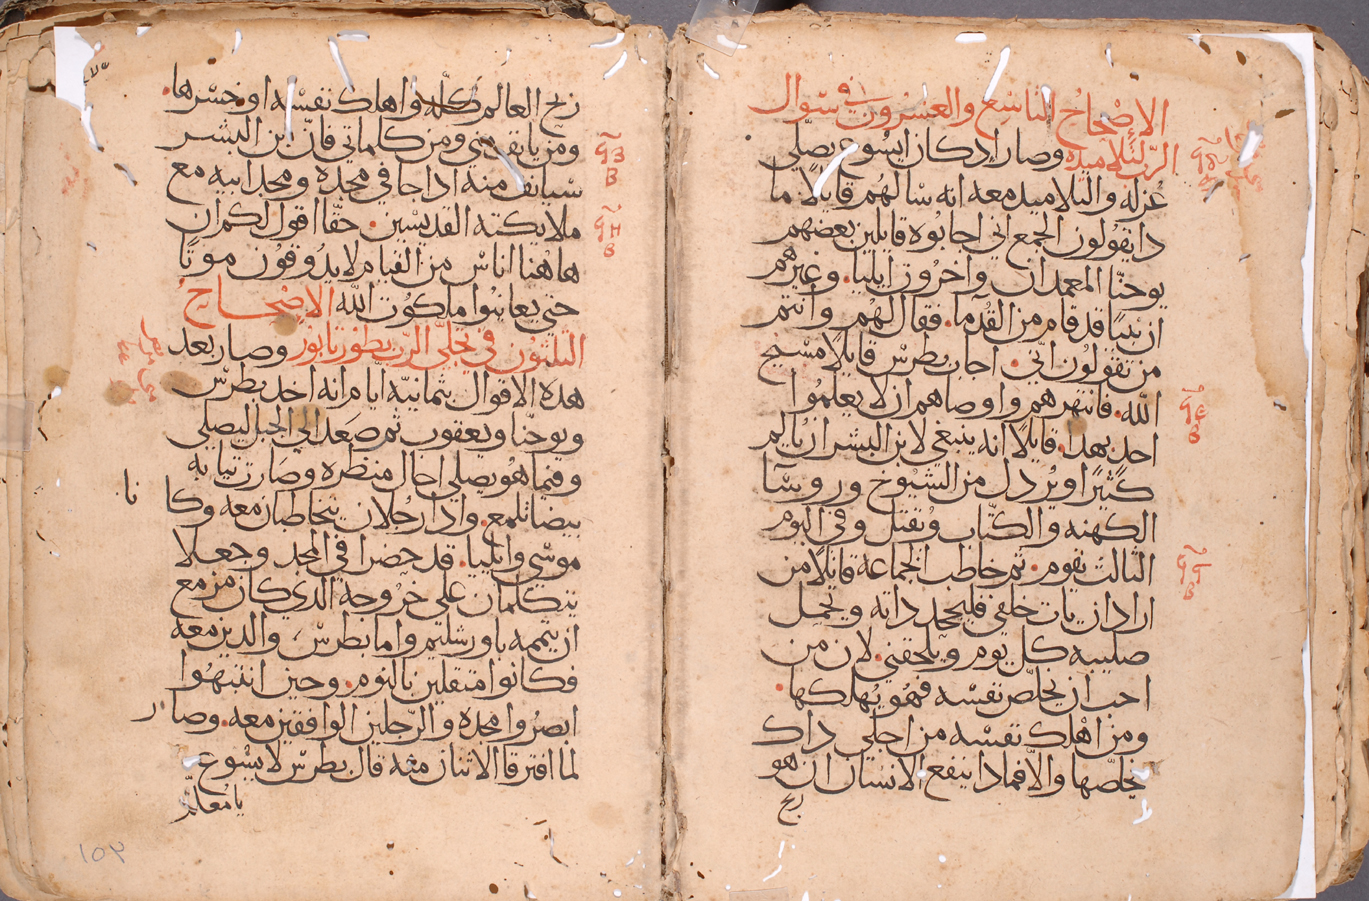 الاصحاح التاسع والعشرون في سوال
الرب لتلاميذه وصار اد كان ايسوع يصلي
عزله والتلاميد معه انه سالهم قايلا ما
دا يقولون الجمع اني اجابوه قايلين بعضهم
يوحنا المعمدان واخرون ايليا. وغيرهم
ان نبيا قد قام من القدما. فقال لهم وانتم
من تقولون اني. اجاب بطرس قايلا مسيح
الله. فانتهرهم واوصاهم ان لا يعلموا
احد بهدا. قايلا انه ينبغي لابن البشر ان يالم
كثيرا ويردل من الشيوخ وروسا
الكهنه والكتاب ويقتل وفي اليوم
الثالث يقوم. ثم خاطب الجماعه قايلا من
اراد ان يات خلفي فليجحد داته ويحمل
صليبه كل يوم ويلحقني. لان من
احب ان يخلص نفسه فهو يهلكها.
ومن اهلك نفسه من اجلي داك
يخلصها والا فمادا ينفع الانسان ان هو
ربح
ربح العالم كله واهلك نفسه او خسرها.
ومن يانف مني ومن كلماتي فان ابن البشر
سيانف منه ادا جا في مجده ومجد ابيه مع
ملايكته القديسين. حقا اقول لكم ان
هاهنا اناس من القيام لا يدوقون موتا
حتي يعاينوا ملكوت الله الاصحاح
الثلثون في تجلي الرب بطور تابور وصار بعد
هده الاقوال بثمانية ايام انه اخد بطرس
ويوحنا ويعقوب ثم صعد الي الجبل ليصلي
وفيما هو يصلي احال منظره وصارت تيابه
بيضا تلمع. وادا رجلان يتخاطبان معه وكا
نا
موسي وايليا. قد حضرا في المجد وجعلا
يتكلمان علي خروجه الدي كان مزمع
ان يتممه باورشليم واما بطرس والدين معه
فكانوا متقلين بالنوم. وحين انتبهوا
ابصروا مجده والرجلين الواقفين معه. وصار
لما افترقا الاتنان منه قال بطرس لايسوع
يا معلم
١٥٢